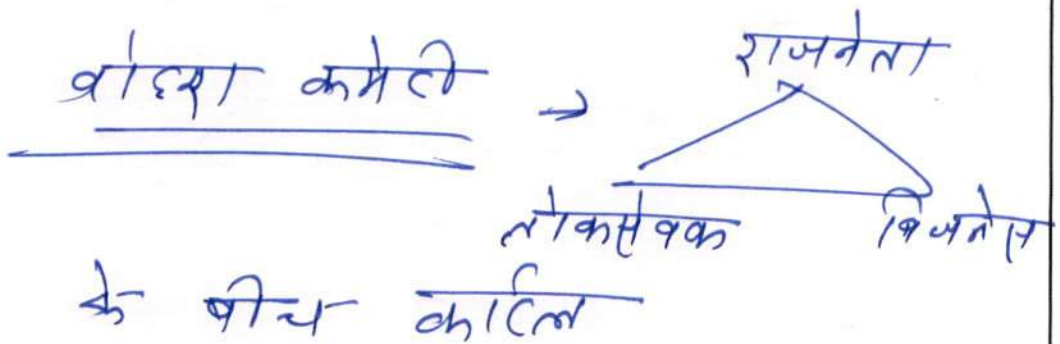 वोहरा कमेटी → राजनेता
लोकसेवक बिजनेस
के बीच कार्टेल